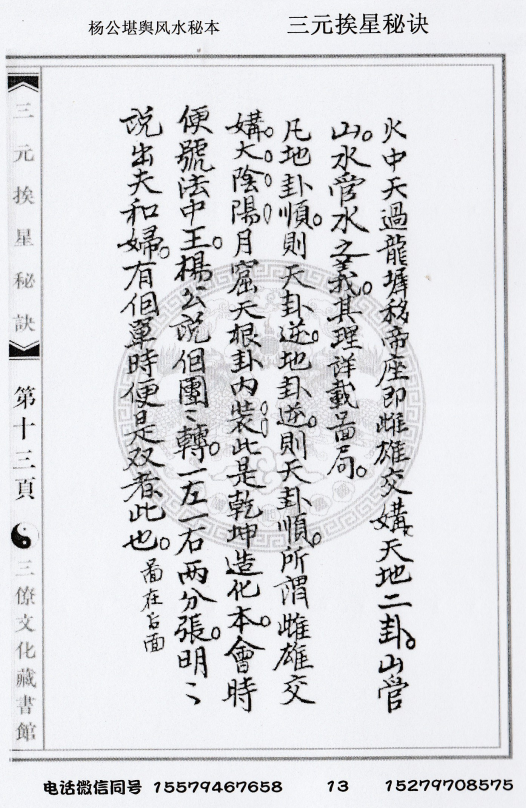 杨公堪舆风水秘本
三元挨星秘诀
火中天過龍墀移帝座即雌雄交媾天地二卦。山管
山。水管水之義。其理詳載啚局。
凡地卦順。則天卦逆。地卦逆。則天卦順。所謂雌雄交
媾。大陰陽月窟天根卦內裝此是乾坤造化本。會時
便號法中王。楊公說個團〻轉。一左一右兩分張。明〻
說出夫和婦。有個單時便是双者此也。啚在后面
三元挨星秘訣
第十三頁
三僚文化藏書館
电话微信同号 15579467658 13 15279708575